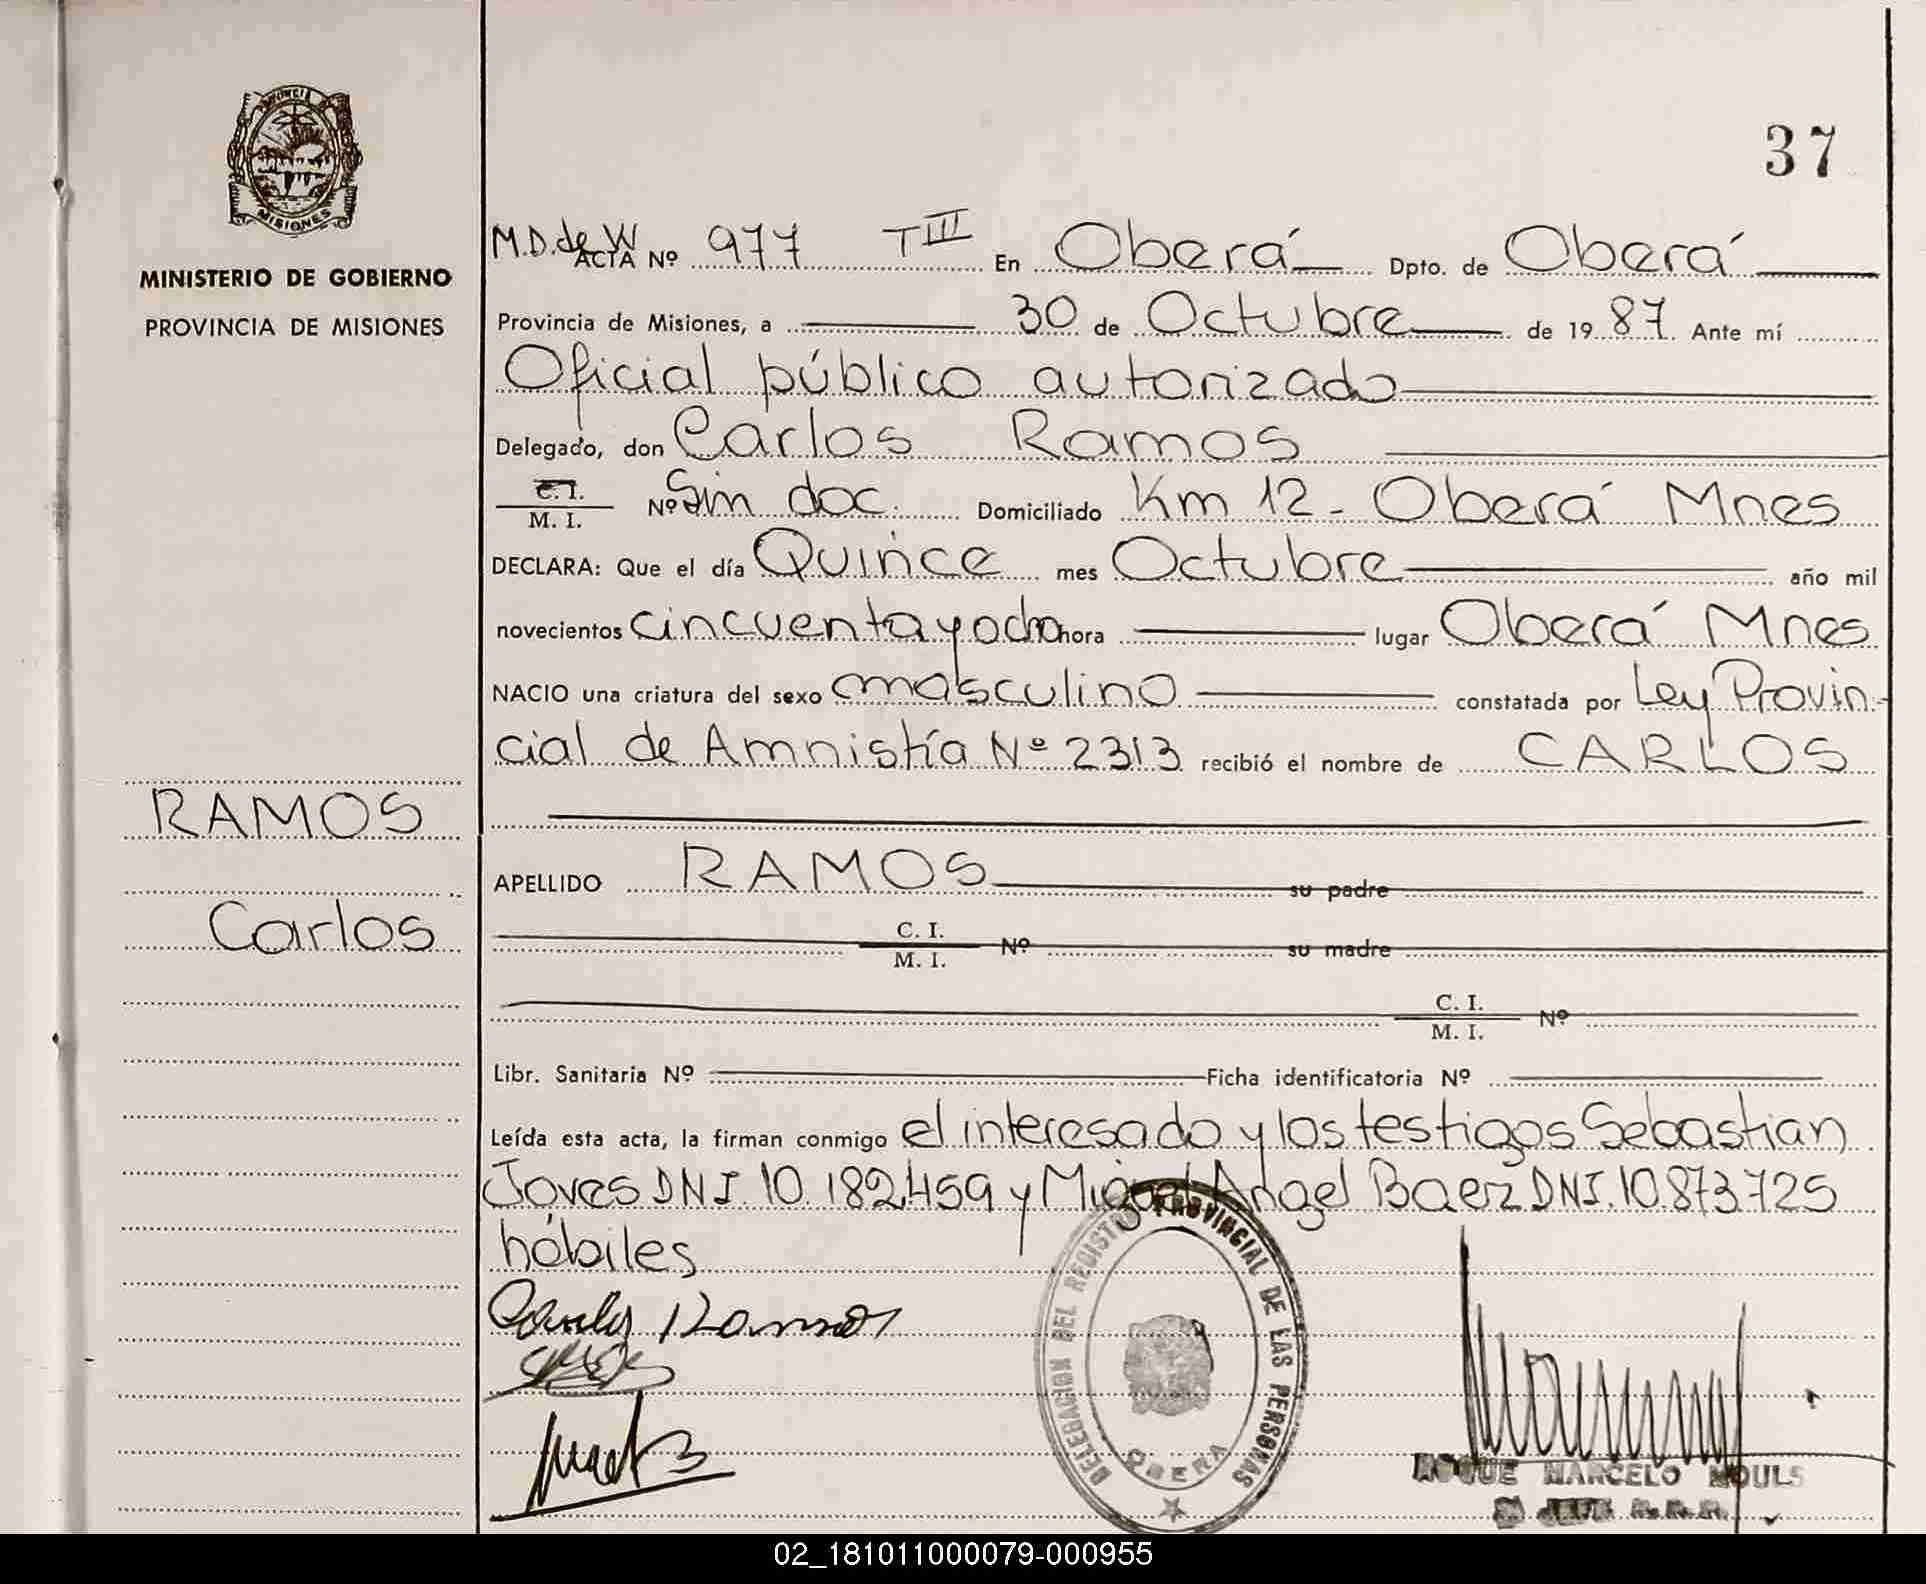 PROVINCIA DE
MISIONES
MINISTERIO DE GOBIERNO
PROVINCIA DE MISIONES
RAMOS
Carlos
37
M.D. de W ACTA Nº 977 TIII En Oberá Dpto. de Oberá
Provincia de Misiones, a 30 de Octubre de 19 87 Ante mí
Oficial público autorizado
Delegado, don Carlos Ramos
C.I. / M. I. Nº Sin doc. Domiciliado Km 12 - Oberá Mnes
DECLARA: Que el día Quince mes Octubre año mil
novecientos cincuenta y ocho hora lugar Oberá Mnes
NACIO una criatura del sexo masculino constatada por Ley Provin-
cial de Amnistía Nº 2313 recibió el nombre de CARLOS
APELLIDO RAMOS su padre
C. I. / M. I. Nº su madre
C. I. / M. I. Nº
Libr. Sanitaria Nº Ficha identificatoria Nº
Leída esta acta, la firman conmigo el interesado y los testigos Sebastian
Joves DNI. 10.182.459 y Miguel Angel Baez DNI. 10.873.725
hábiles
Carlos Ramos
DELEGACION DEL REGISTRO PROVINCIAL DE LAS PERSONAS
OBERA
ROQUE MARCELO MOULS
JEFE
02_181011000079-000955